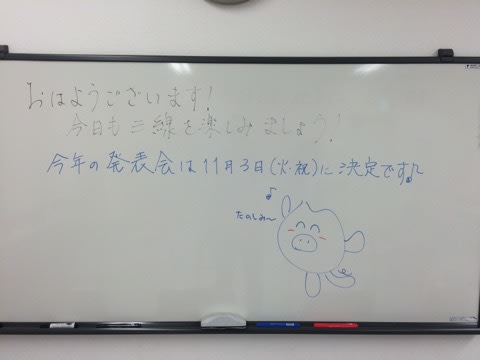 おはようございます!
今日も三線を楽しみましょう!
今年の発表会は11月3日(火・祝)に決定です♪
♪
たのしみ〜